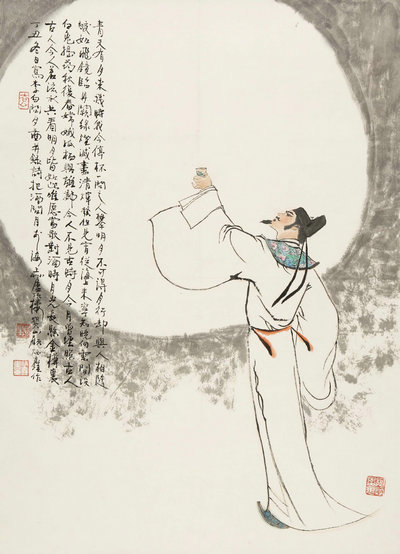 青天有月來幾時我今停杯一問之人攀明月不可得月行却與人相隨
皎如飛鏡臨丹闕綠煙滅盡清輝發但見宵從海上來寧知曉向雲間沒
白兔搗藥秋復春嫦娥孤棲與誰鄰今人不見古時月今月曾經照古人
古人今人若流水共看明月皆如此唯願當歌對酒時月光長照金樽裏
丁丑冬日寫李白問月圖并錄詩把酒問月於海上